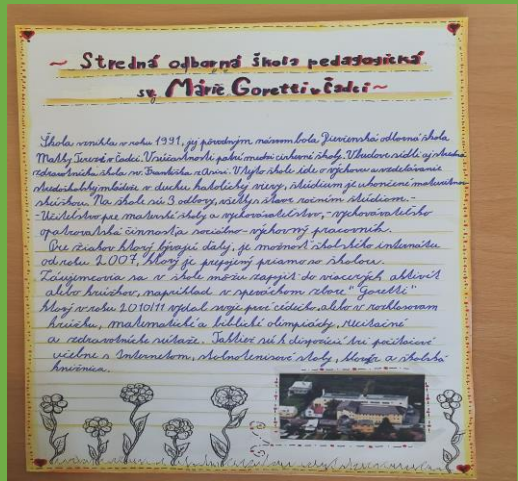 ~ Stredná odborná škola pedagogická
sv. Márie Goretti v Čadci ~
Škola vznikla v roku 1991, jej pôvodným názvom bola Dievčenská odborná škola
Matky Terezy v Čadci. V súčasnosti patrí medzi cirkevné školy. V budove sídli aj stredná
zdravotnícka škola sv. Františka z Assisi. V tejto škole ide o výchovu a vzdelávanie
stredoškolskej mládeže v duchu katolíckej viery, štúdium je ukončené maturitnou
skúškou. Na škole sú 3 odbory, všetky v štvor ročnom štúdiom. -
- Učiteľstvo pre materské školy a vychovávateľstvo, - vychovávateľsko
opatrovská činnosť a sociálno - výchovný pracovník.
Pre žiakov ktorý bývajú ďalej, je možnosť školského internátu
od roku 2007, ktorý je prepojený priamo so školou.
Záujemcovia sa v škole môžu zapojiť do viacerých aktivít
alebo krúžkov, napríklad v speváckom zbore "Goretti"
ktorý v roku 2010/11 vydal svoje prvé cédečko, alebo v rozhlasovom
krúžku, matematické a biblické olimpiády, recitačné
a zdravotnícke súťaže. Taktiež sú k dispozícií tri počítačové
učebne s Internetom, stolnotenisové stoly, a školská
knižnica.